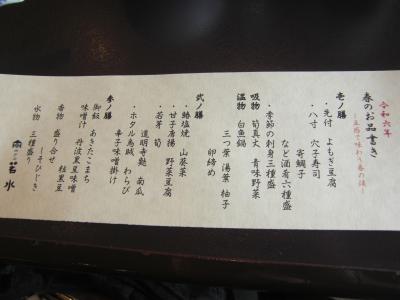 令和六年
春のお品書き
～五感で味わう春の膳～
壱ノ膳
・先付 よもぎ豆腐
・八寸 穴子寿司
寄鯛子
など酒肴六種盛
・季節の刺身三種盛
吸物 筍真丈 青味野菜
温物 白魚鍋
三つ葉 湯葉 柚子
卵締め
弐ノ膳
・鰆塩焼 山葵菜
・甘子唐揚 野菜豆腐
・若芽 筍
道明寺麩 南瓜
・ホタル烏賊 わらび
辛子味噌掛け
参ノ膳
御飯 あきたこまち
味噌汁 丹波黒豆味噌
香物 盛り合せ
粒黒豆
しそひじき
水物 三種盛り